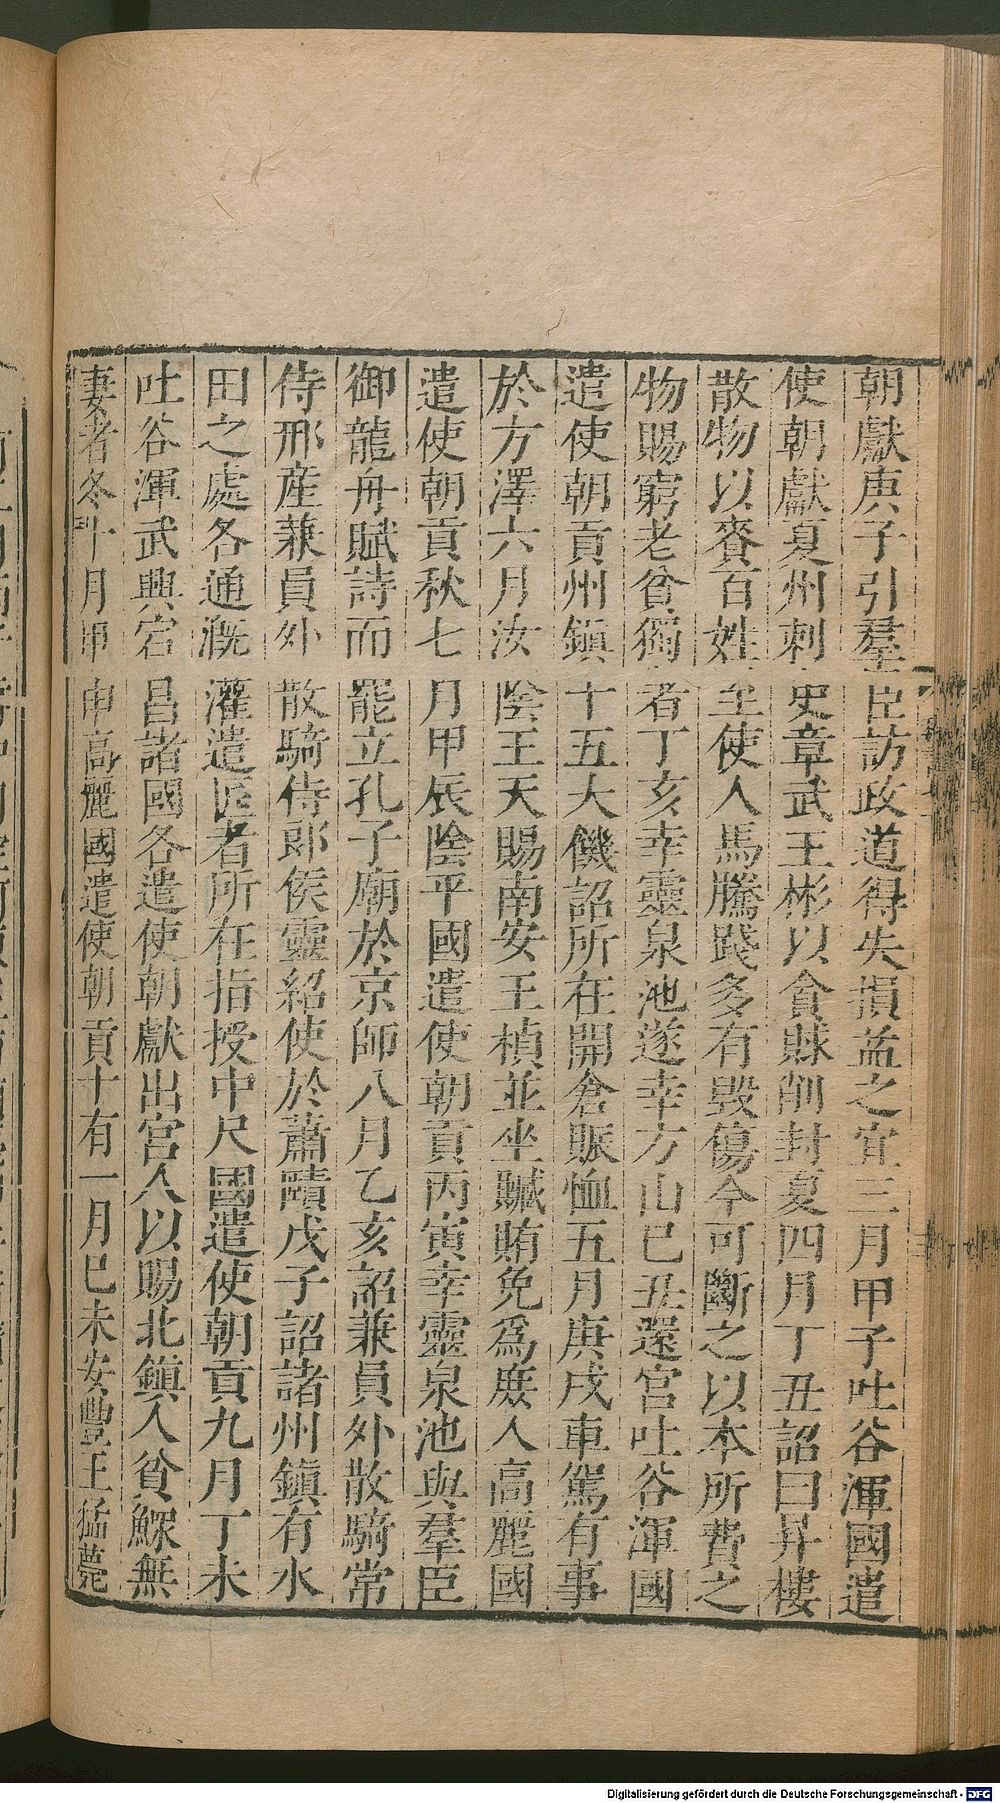 朝獻庚子引羣臣訪政道得失損益之宜三月甲子吐谷渾國遣
使朝獻夏州刺史章武王彬以貪賕削封夏四月丁丑詔曰升樓
散物以賚百姓至使人馬騰踐多有毀傷今可斷之以本所費之
物賜窮老貧獨者丁亥幸靈泉池遂幸方山已丑還宮吐谷渾國
遣使朝貢州鎮十五大饑詔所在開倉賑恤五月庚戌車駕有事
於方澤六月汝陰王天賜南安王楨並坐贓賄免爲庶人高麗國
遣使朝貢秋七月甲辰陰平國遣使朝貢丙寅幸靈泉池與羣臣
御龍舟賦詩而罷立孔子廟於京師八月乙亥詔兼員外散騎常
侍邢産兼員外散騎侍郎侯靈紹使於蕭賾戊子詔諸州鎮有水
田之處各通溉灌遣匠者所在指授中尺國遣使朝貢九月丁未
吐谷渾武興宕昌諸國各遣使朝獻出宮人以賜北鎮人貧鰥無
妻者冬十月甲申高麗國遣使朝貢十有一月巳未安豐王猛薨
Digitalisierung gefördert durch die Deutsche Forschungsgemeinschaft - DFG